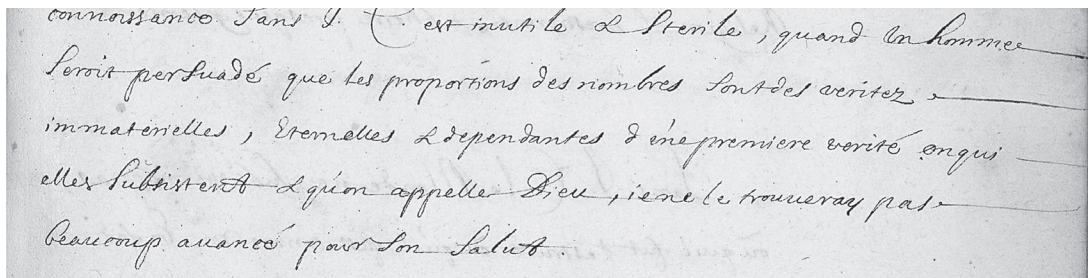 connoissance sans J. C. est inutile & sterile, quand un homme
seroit persuadé que les proportions des nombres sont des veritez
immaterielles, eternelles & dependantes d'une premiere verité en qui
elles subsistent & qu'on appelle Dieu, ie ne le trouueray pas
beaucoup auancé pour son salut.